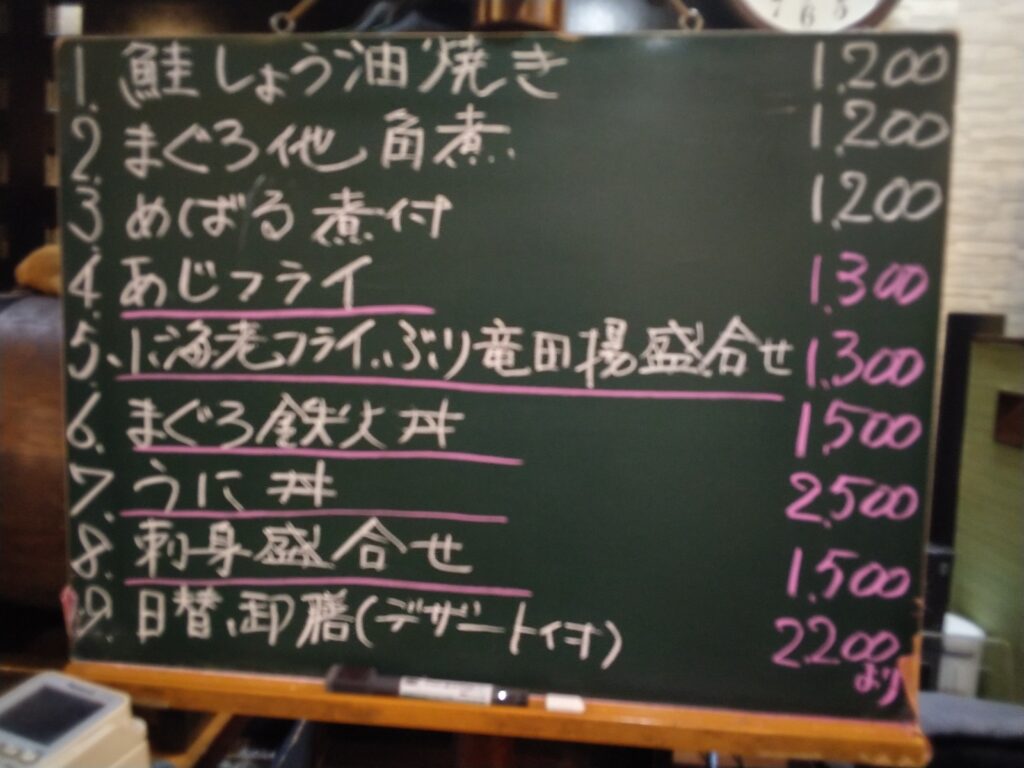 7 6 5
1. 鮭しょう油焼き 1,200
2. まぐろ他角煮 1,200
3. めばる煮付 1,200
4. あじフライ 1,300
5. 小海老フライ、ぶり竜田揚盛合せ 1,300
6. まぐろ鉄火丼 1,500
7. うに丼 2,500
8. 刺身盛合せ 1,500
9. 日替御膳(デザート付) 2,200
より